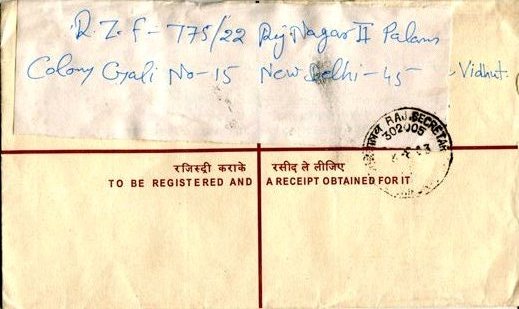 R.Z.F- 775/22 Raj Nagar II Palam
Colony Gali No-15 New Delhi-45 - Vidhut.
RAJ. SECRETAR
302005
रजिस्ट्री कराके रसीद ले लीजिए
TO BE REGISTERED AND A RECEIPT OBTAINED FOR IT